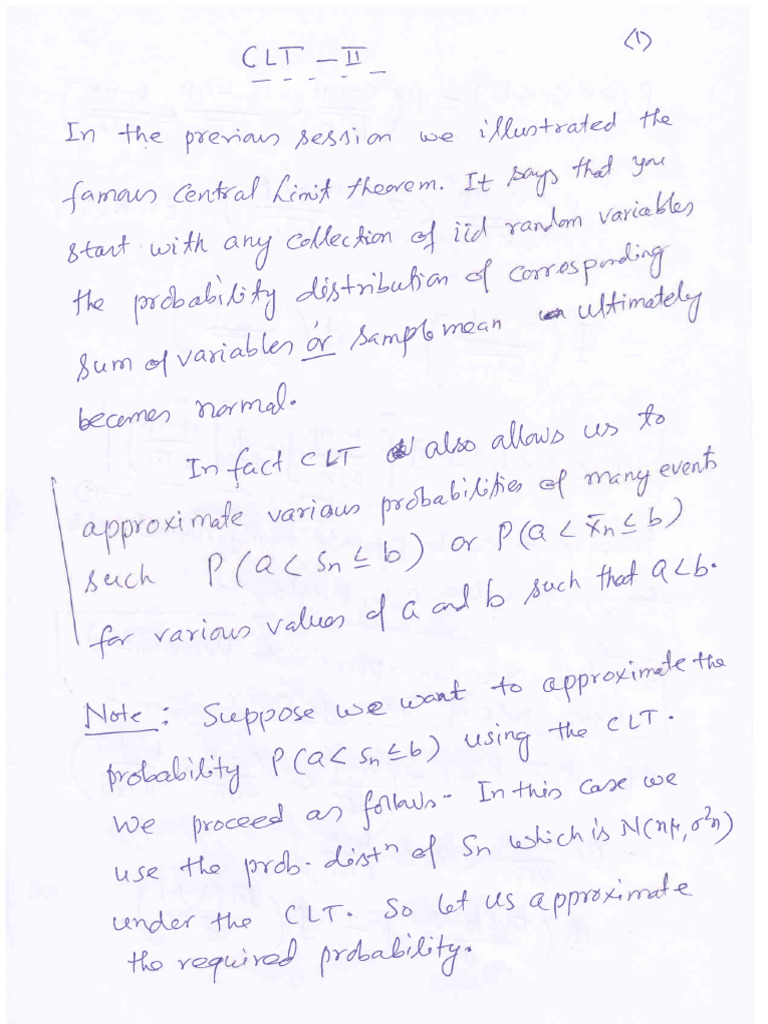 (1)
CLT - II
In the previous session we illustrated the
famous Central Limit theorem. It says that you
start with any collection of iid random variables
the probability distribution of corresponding
sum of variables or sample mean ultimately
becomes normal.
In fact CLT also allows us to
approximate various probabilities of many events
such P(a < Sn ≤ b) or P(a < X̄n ≤ b)
for various values of a and b such that a<b.
Note: Suppose we want to approximate the
probability P(a< Sn ≤b) using the CLT.
We proceed as follows- In this case we
use the prob. distⁿ of Sn which is N(nμ, σ²n)
under the CLT. So let us approximate
the required probability.